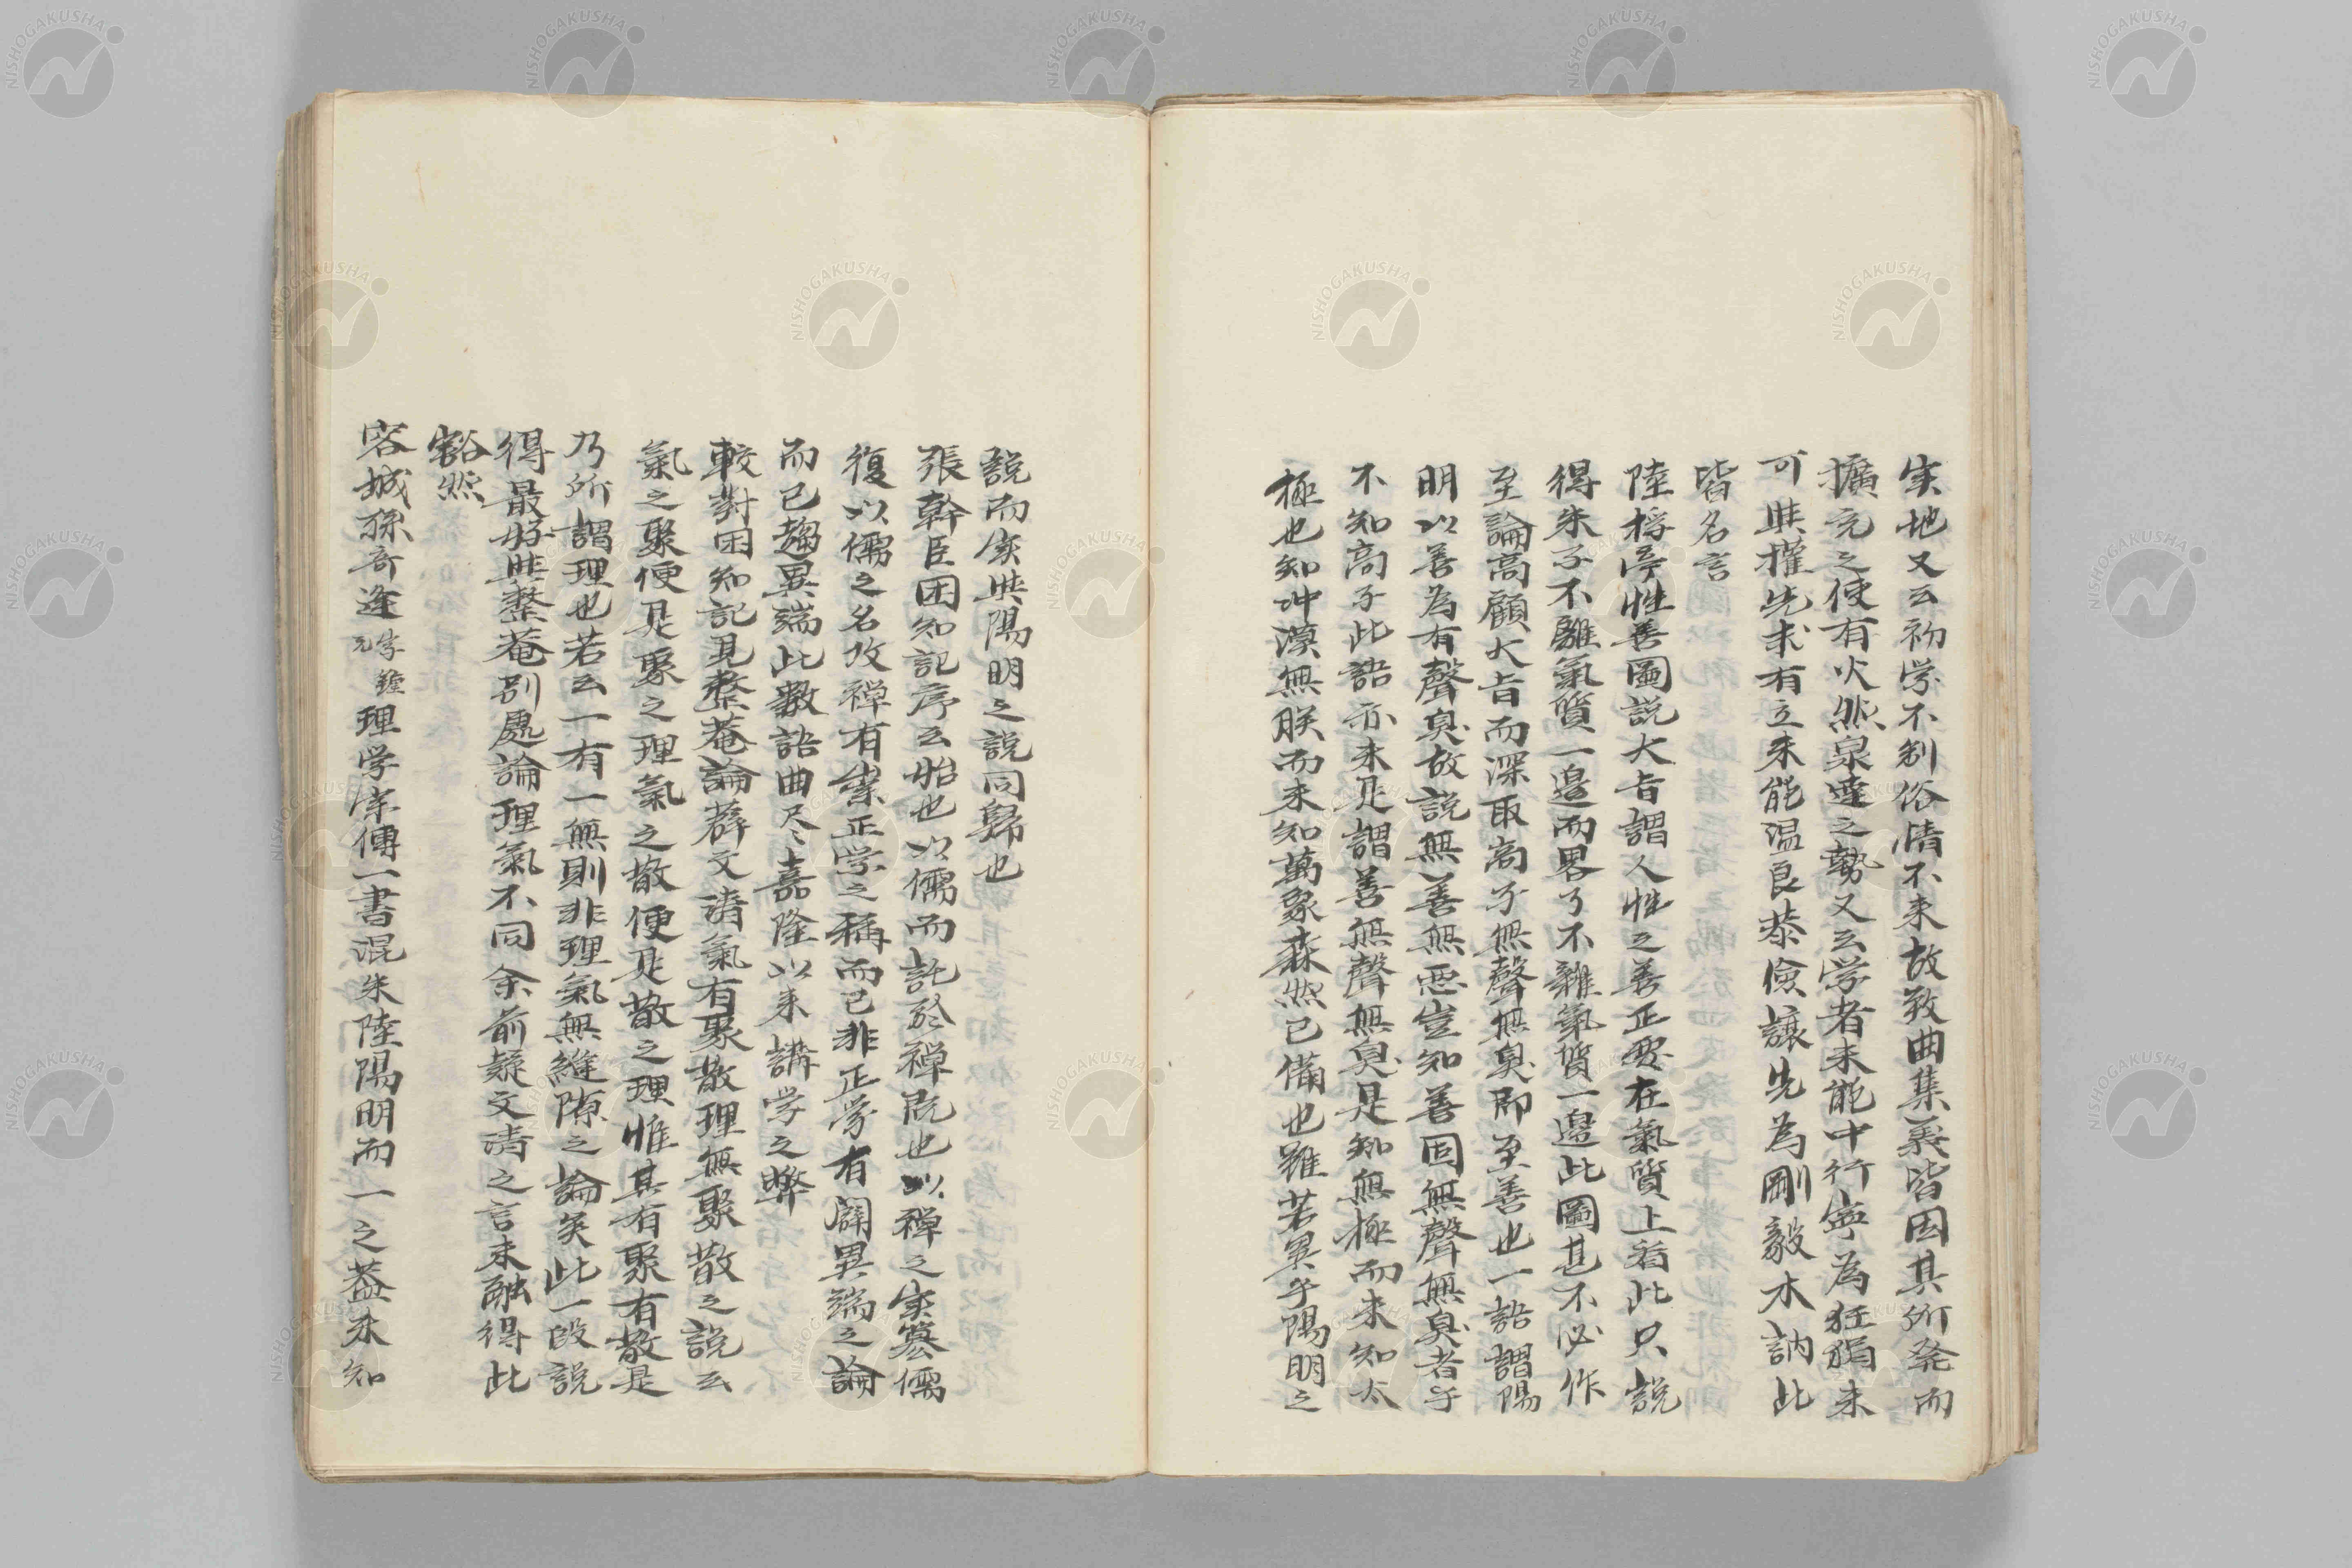 実地又云初学不剝俗情不来故致曲集義皆因其所発而
擴充之使有火然泉達之勢又云学者未能中行寧為狂狷未
可與權先求有立未能温良恭儉讓先為剛毅木訥此
皆名言
陸桴亭性善圖説大旨謂人性之善正要在氣質上看此只説
得朱子不離氣質一邉而畧了不雜氣質一邉此圖甚不必作
至論高顧大旨而深取高子無聲無臭即至善也一語謂陽
明以善為有聲臭故説無善無悪豈知善固無聲無臭者乎
不知高子此語亦未是謂善無聲無臭是知無極而未知太
極也知冲漠無朕而未知萬象森然已備也雖若異乎陽明之
説而実與陽明之説同歸也
張幹臣困知記序云始也以儒而託於禅既也以禅之実簒儒
復以儒之名攻禅有崇正学之稱而已非正学有闢異端之論
而已趨異端此數語曲尽嘉隆以来講学之弊
較對困知記見整菴論薛文清氣有聚散理無聚散之説云
氣之聚便是聚之理氣之散便是散之理惟其有聚有散是
乃所謂理也若云一有一無則非理氣無縫隙之論矣此一段説
得最好與整菴別處論理氣不同余前疑文清之言未融得此
豁然
容城孫奇逢理学宗傳一書混朱陸陽明而一之葢未知
NISHOGAKUSHA